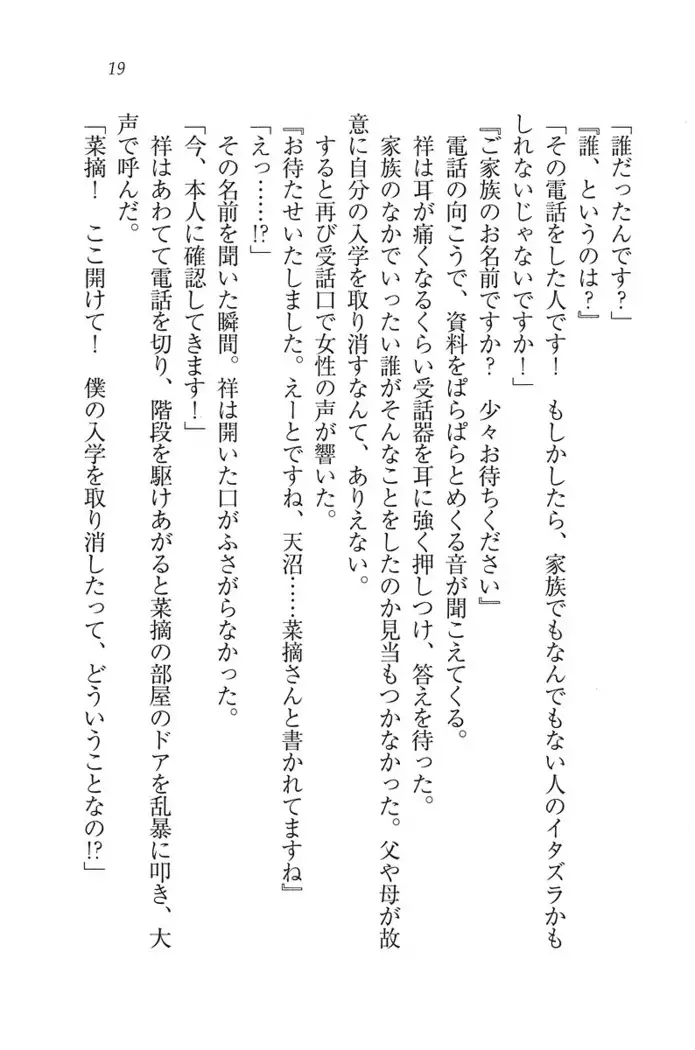 19
「誰だったんです？」
『誰、というのは？』
「その電話をした人です！　もしかしたら、家族でもなんでもない人のイタズラかも
しれないじゃないですか！」
『ご家族のお名前ですか？　少々お待ちください』
電話の向こうで、資料をぱらぱらとめくる音が聞こえてくる。
祥は耳が痛くなるくらい受話器を耳に強く押しつけ、答えを待った。
家族のなかでいったい誰がそんなことをしたのか見当もつかなかった。父や母が故
意に自分の入学を取り消すなんて、ありえない。
すると再び受話口で女性の声が響いた。
『お待たせいたしました。えーとですね、天沼……菜摘さんと書かれてますね』
「えっ……!?」
その名前を聞いた瞬間。祥は開いた口がふさがらなかった。
「今、本人に確認してきます！」
祥はあわてて電話を切り、階段を駆けあがると菜摘の部屋のドアを乱暴に叩き、大
声で呼んだ。
「菜摘！　ここ開けて！　僕の入学を取り消したって、どういうことなの!?」